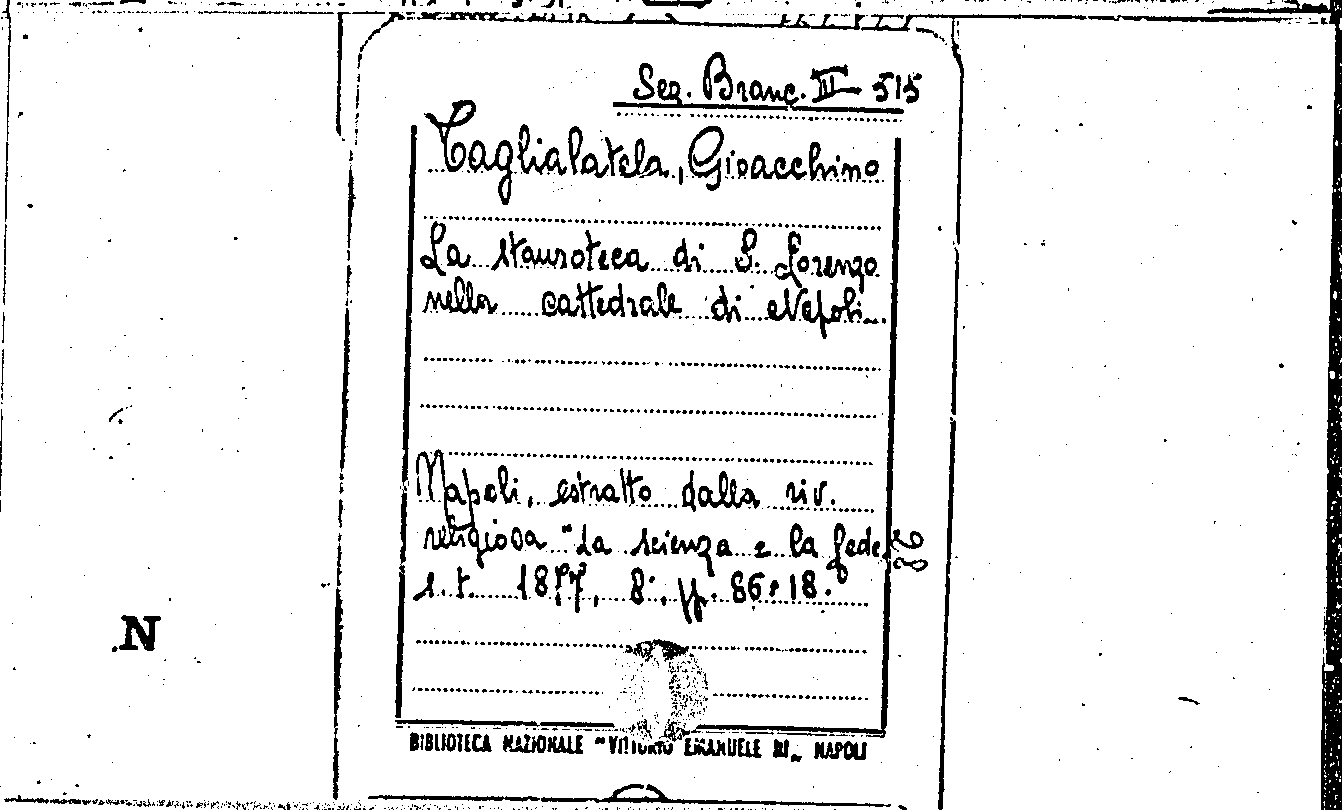 Seg. Branc. III 515
Taglialatela, Gioacchino
La stauroteca di S. Lorenzo
nella cattedrale di Napoli.
Napoli, estratto dalla riv.
religiosa "La scienza e la fede
s. t. 1877, 8°, pp. 86+18.
N
BIBLIOTECA NAZIONALE "VITTORIO EMANUELE III„ NAPOLI